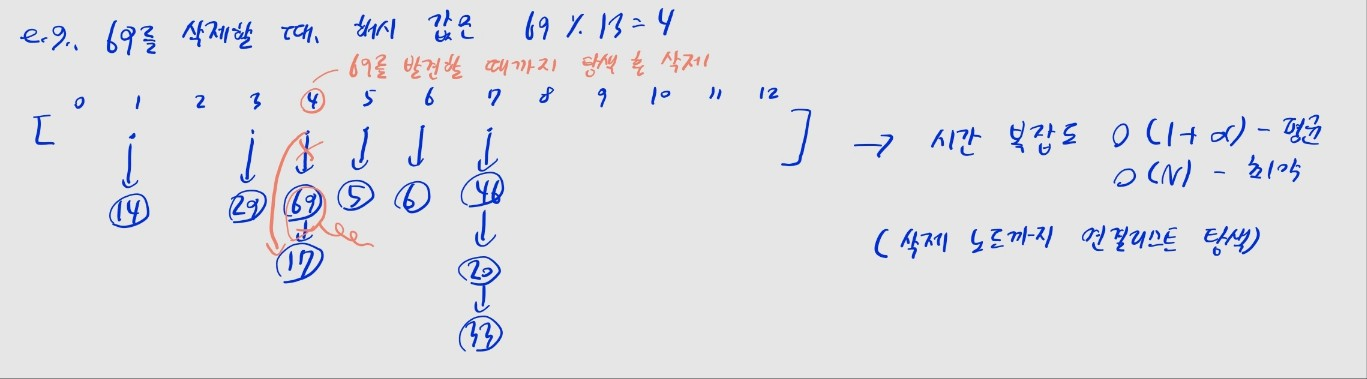 e.g., 69를 삭제할 때, 해시 값은 69 % 13 = 4
69를 발견할 때까지 탐색 후 삭제
0 1 2 3 4 5 6 7 8 9 10 11 12
[ ] → 시간 복잡도 O(1+α) - 평균
O(N) - 최악
14 29 69 5 6 46
(삭제 노드까지 연결리스트 탐색)
17 20
33